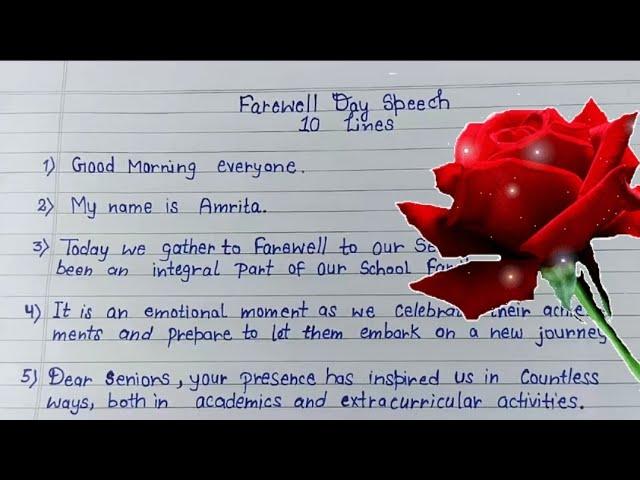 Farewell Day Speech
10 Lines
1) Good Morning everyone.
2) My name is Amrita.
3) Today we gather to Farewell to our
been an integral part of our School
4) It is an emotional moment as we celebrate their achieve
ments and prepare to let them embark on a new journey
5) Dear Seniors, your presence has inspired us in Countless
ways, both in academics and extracurricular activities.